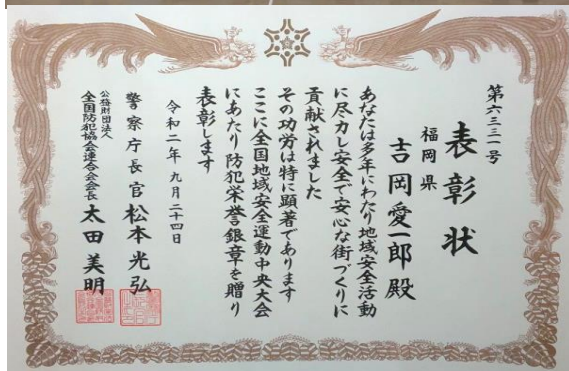 第六三三一号
表彰状
福岡県
吉岡愛一郎殿
あなたは多年にわたり地域安全活動
に尽力し安全で安心な街づくりに
貢献されました
その功労は特に顕著であります
ここに全国地域安全運動中央大会
にあたり防犯栄誉銀章を贈り
表彰します
令和二年九月二十四日
警察庁長官 松本光弘
公益財団法人
全国防犯協会連合会会長 太田美明